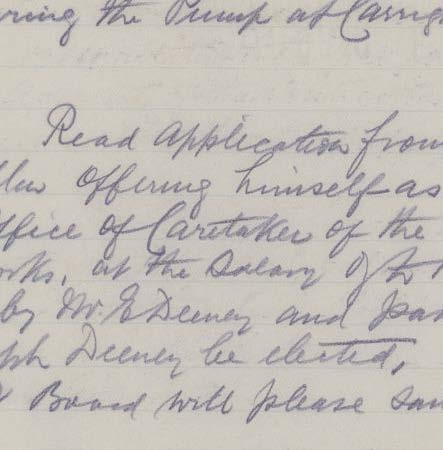 the Pump at Carrig
Read application from
offering himself as
ffice of Caretaker of the
orks, at the Salary of
by Mr. E Deeney and
ph Deeney be elected,
Board will please san